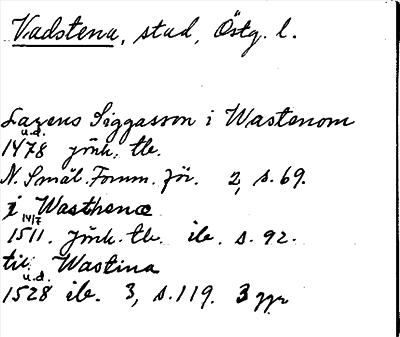 Vadstena, stad, Östg. l.
Larens Siggasson i Wastenom
u.d.
1478 jönk. tb.
N. Smål. Fornm. för. 2, s. 69.
i Wasthenæ
14/7
1511. Jönk. tb. ib. s. 92.
til Wastina
u.d.
1528 ib. 3, s. 119. 3 ggr